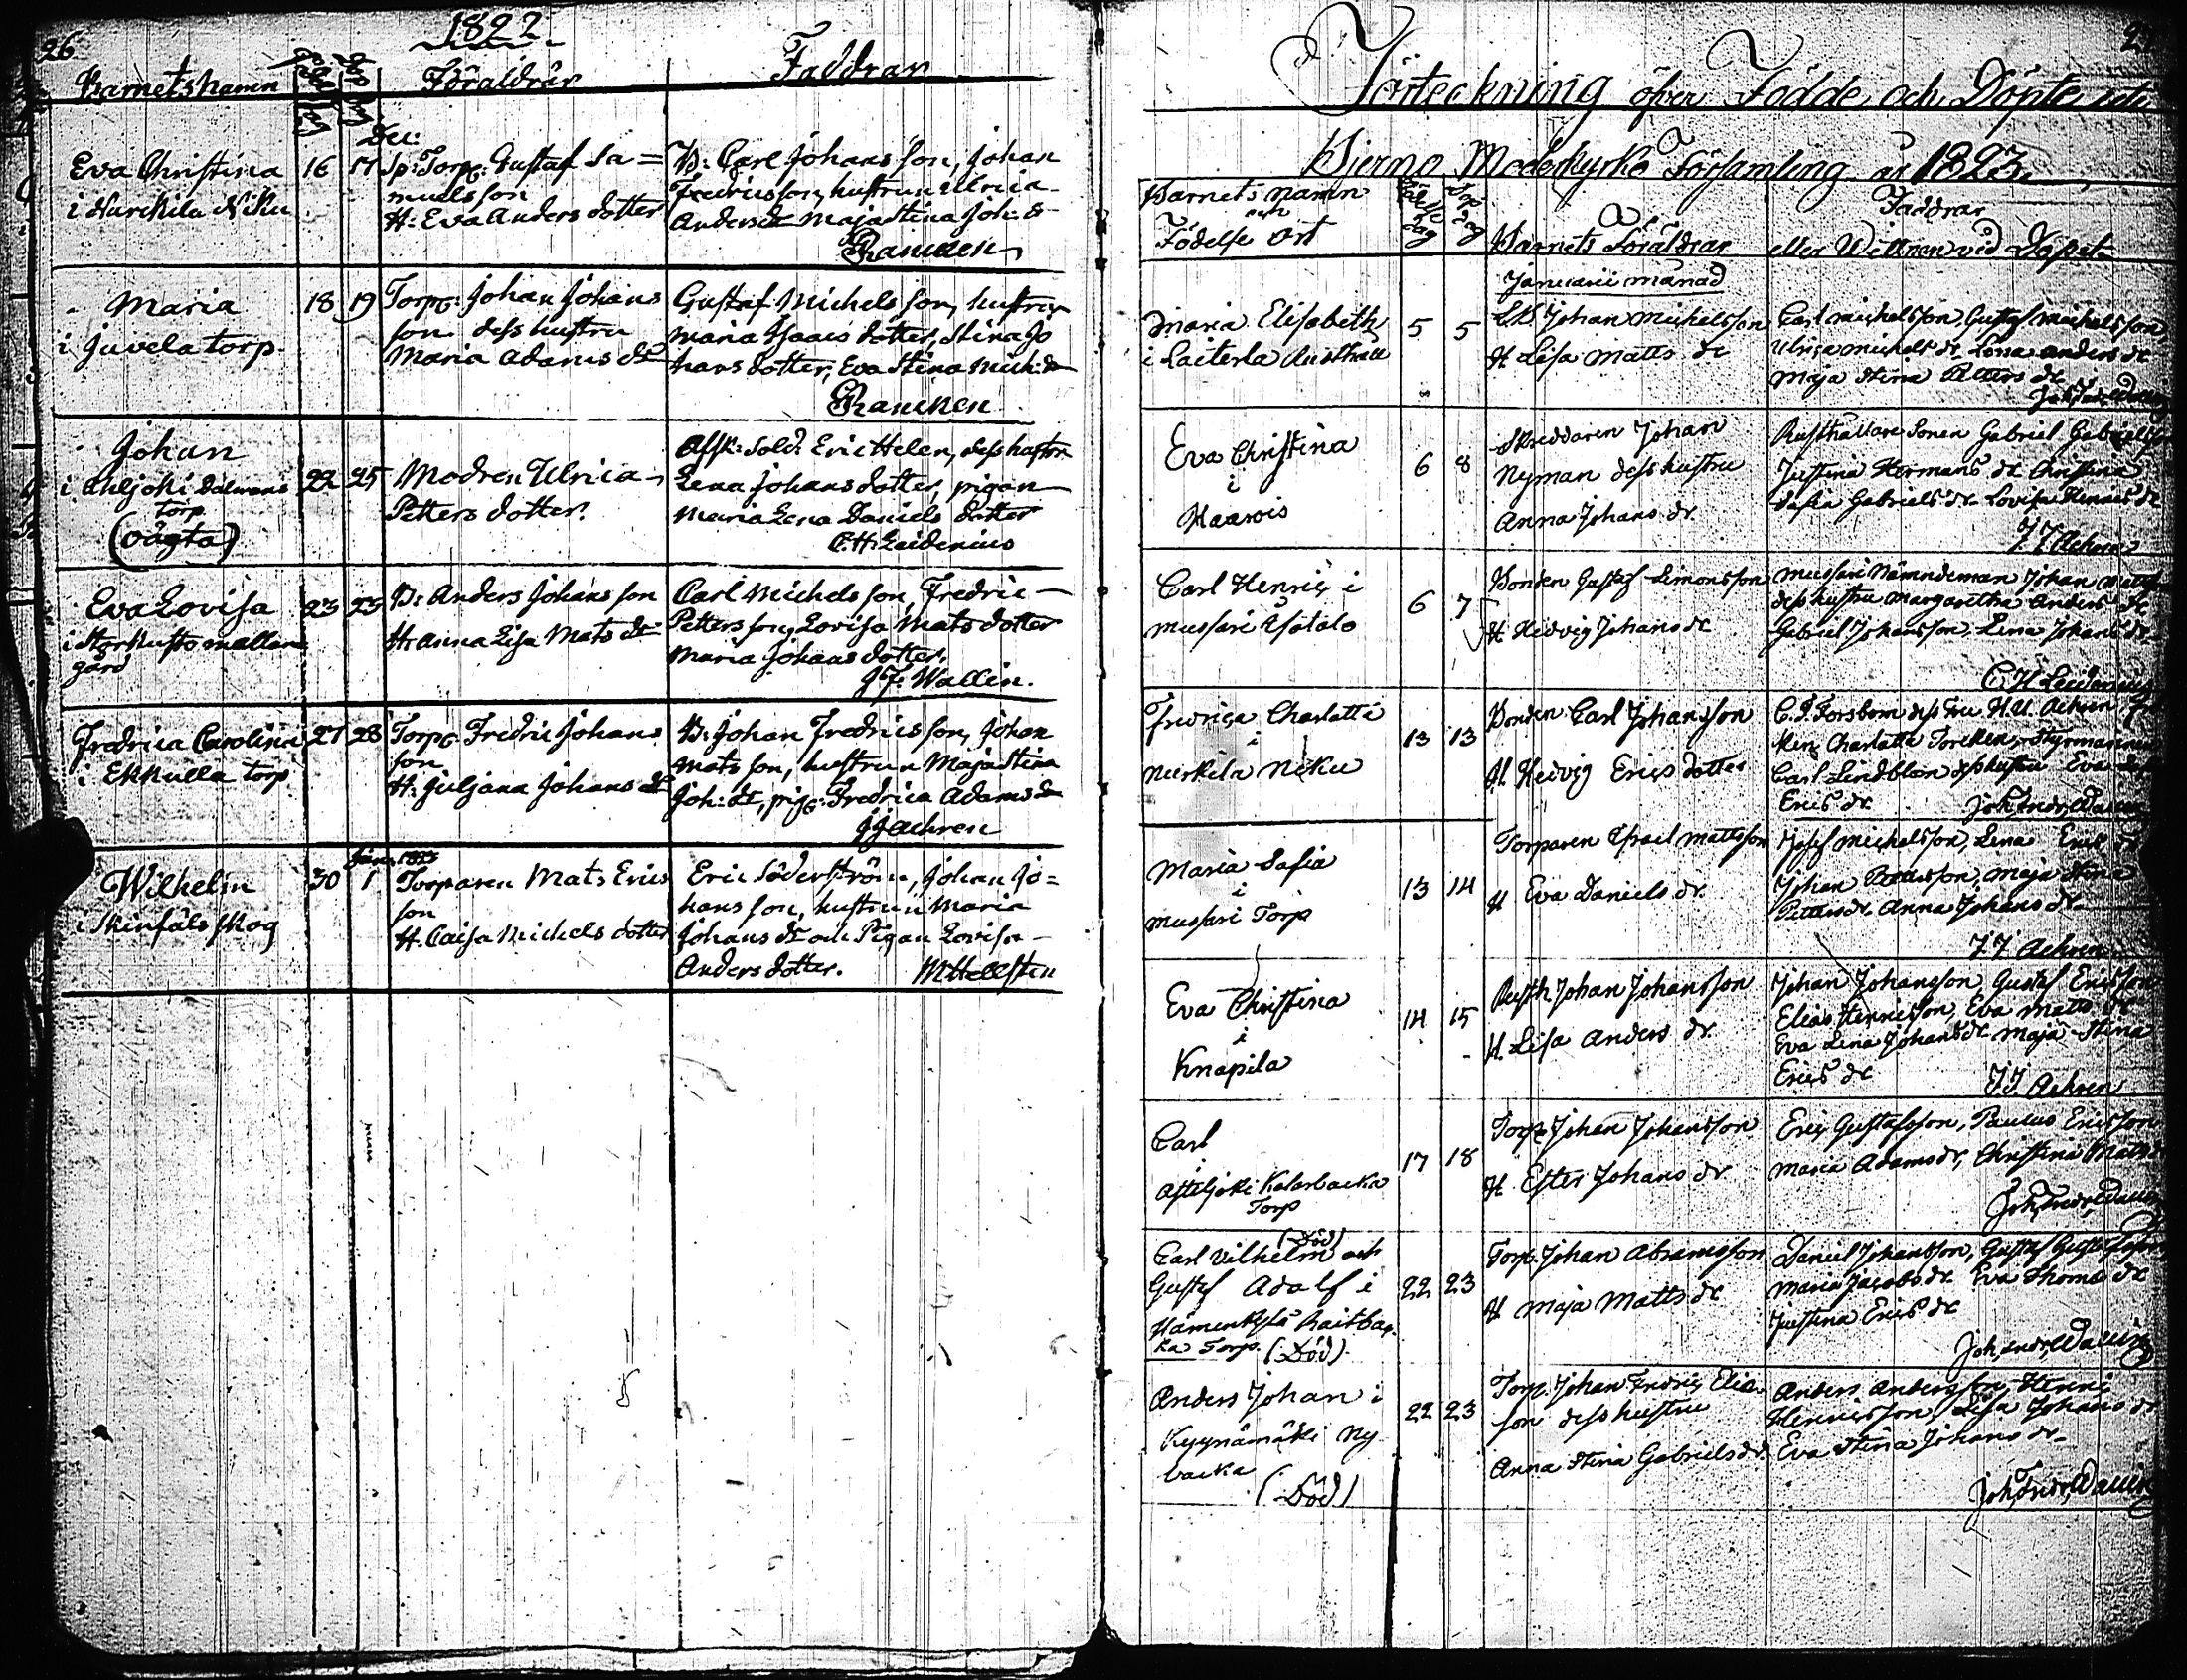 26
1822
Barnets namn
Föräldrar
Faddrar
Dec:
Eva Christina
i Nurkila Niku
16 17
Sp: Torp: Gustaf Sa=
muelsson
H: Eva Anders dotter
B: Carl Johans son, Johan
Fredricsson, hustrun Ulrica
Anders dr Maja Stina Joh: dr
Ranicken
Maria
i Juvela torp.
18 19
Torp: Johan Johans
son dess hustru
Maria Adams dr
Gustaf Michels son, hustrun
Maria Isaacs dotter, Stina Jo
hans dotter, Eva Stina Mich: dr
Ranicken
Johan
torp
(oägta)
22 25
Modren Ulrica
Petters dotter.
Afsk: Sold: Eric Helen, dess hustru
Lena Johans dotter, pigan
Maria Lena Daniels dotter
C. H. Leidenius
Eva Lovisa
gård
23 25
B: Anders Johans son
H: Anna Lisa Mats dr
Carl Michels son, Fredric
Petters son, Lovisa Mats dotter
Maria Johans dotter.
J F. Wallin.
Fredrica Carolina
i Ekkulla torp
27 28
Torp: Fredric Johans
son
H: Juljana Johans dr
B: Johan Fredricsson, Johan
Mats son, hustrun Maja Stina
Joh: dr, pig: Fredrica Adams dr
J J Achren
Wilhelm
i Skinfäls skog
30 1
Jan: 1823
Torparen Mats Erics
son
H. Caisa Michels dotter
Eric Söderström, Johan Jo=
hans son, hustrun Maria
Johans dr och Pigan Lovisa
Anders dotter. M Hellsten
Förteckning öfver Födde och Döpte uti
Bierno Moderkyrko Församling år 1823.
Barnets namn
och
Födelse Ort
Barnets Föräldrar
Faddrar
eller Wittnen vid Döpet
Januarii månad
Maria Elisabeth
i Laiterla
5 5
Johan Michelsson
H Lisa Matts dr
Carl Michelsson, Gustaf Michelsson,
Ulrica Michels dr Lena Anders dr
Maja Stina Petters dr
Eva Christina
i
Haarois
6 8
Skreddaren Johan
Nyman dess hustru
Anna Johans dr.
Rusthållare Sonen Gabriel
Justina Hermans dr Christina
Safia Gabriels dr Lovisa Henrics dr
J J Achren
Carl Henric i
Mussari Isotalo
6 7
Bonden Gustaf Simonsson
H Hedvig Johans dr
Mussari Nämndeman Johan
dess hustru Margaretha Anders dr
Gabriel Johansson, Lena Johans dr
C. H Leidenius
Fredrica Charlatta
i
Nurkila Niku
13 13
Bonden Carl Johansson
H. Hedvig Erics dotter
C. J. Forsbom dess Fru H. U. Achren
Charlatta
Carl Lindblom dess hustru Eva
Erics dr.
Maria Safia
i
Mussari Torp
13 14
Torparen Israel Mattsson
H Eva Daniels dr.
Josef Michelsson, Lena Erics dr
Johan Pettersson, Maja Stina
Petters dr. Anna Johans dr.
J J Achren
Eva Christina
i
Knapila
14 15
Rusth. Johan Johansson
H. Lisa Anders dr.
Johan Johansson, Gustaf Ericsson
Elias Henricsson, Eva Matts dr
Eva Lena Johans dr Maja Stina
Erics dr J J. Achren
Carl
i
Torp
17 18
Torp: Johan Johansson
H. Ester Johans dr
Eric Gustafsson, Paulus Ericsson
Maria Adams dr, Christina Matts dr
(Död)
Carl Vilhelm och
Gustaf Adolf i
ka Torp. (Död).
22 23
Torp: Johan Abramsson
H Maja Matts dr
Daniel Johansson, Gustaf Gustafsson
Maria Jacobs dr. Eva Thomas dr
Justina Erics dr
Anders Johan i
Kyynämäki Ny
backa
(Död)
22 23
Torp. Johan Fredric Elia
son dess hustru
Anna Stina Gabriels dr.
Anders Andersson, Henric
Henricsson, Lisa Johans dr
Eva Stina Johans dr